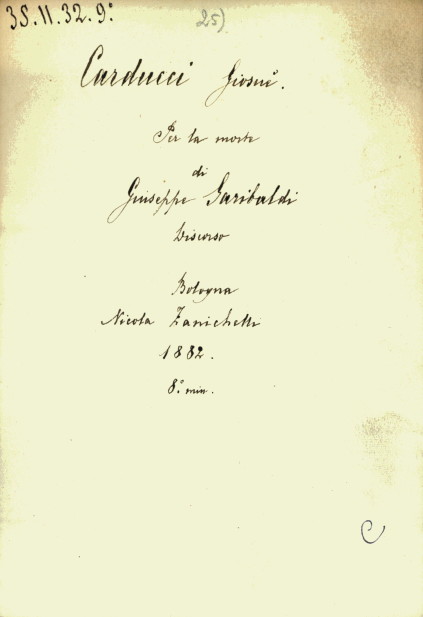 35.11.32.9°
25)
Carducci Giosuè.
Per la morte
di
Giuseppe Garibaldi
Discorso
Bologna
Nicola Zanichelli
1882.
8.° min.
C